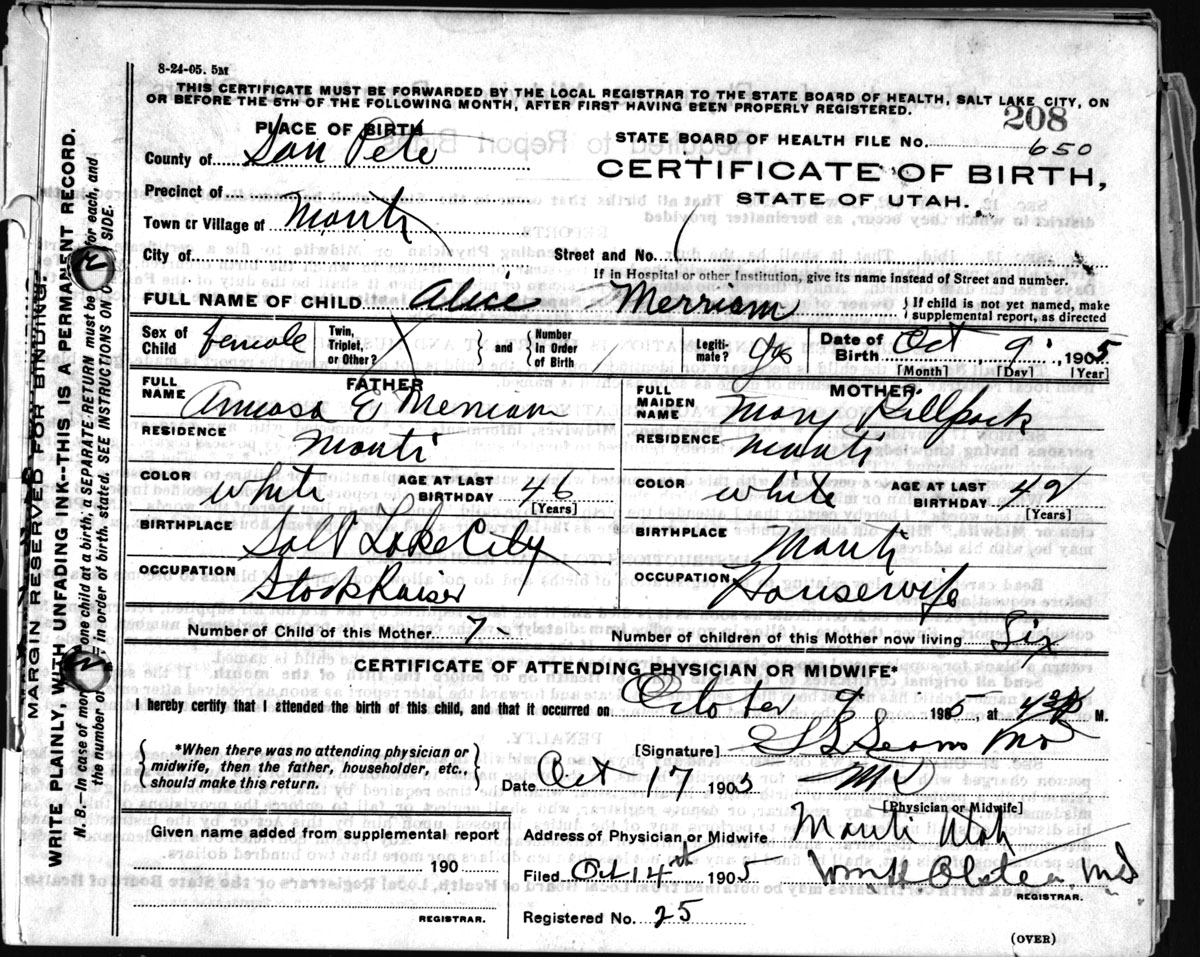 8-24-05. 5M
THIS CERTIFICATE MUST BE FORWARDED BY THE LOCAL REGISTRAR TO THE STATE BOARD OF HEALTH, SALT LAKE CITY, ON
OR BEFORE THE 5TH OF THE FOLLOWING MONTH, AFTER FIRST HAVING BEEN PROPERLY REGISTERED.
208
PLACE OF BIRTH
STATE BOARD OF HEALTH FILE No. 650
County of San Pete
CERTIFICATE OF BIRTH,
STATE OF UTAH.
Precinct of
Town or Village of Manti
City of
Street and No.
If in Hospital or other Institution, give its name instead of Street and number.
FULL NAME OF CHILD Alice Merriam
If child is not yet named, make supplemental report, as directed
Sex of Child female
Twin, Triplet, or Other?
and
Number In Order of Birth
Legitimate? yes
Date of Birth Oct 9 1905
[Month] [Day] [Year]
FATHER
FULL NAME Amasa E Merriam
RESIDENCE Manti
COLOR White
AGE AT LAST BIRTHDAY 46
[Years]
BIRTHPLACE Salt Lake City
OCCUPATION Stock Raiser
MOTHER
FULL MAIDEN NAME Mary Killpack
RESIDENCE Manti
COLOR White
AGE AT LAST BIRTHDAY 42
[Years]
BIRTHPLACE Manti
OCCUPATION Housewife
Number of Child of this Mother 7
Number of children of this Mother now living Six
CERTIFICATE OF ATTENDING PHYSICIAN OR MIDWIFE*
I hereby certify that I attended the birth of this child, and that it occurred on October 9 1905 at M.
*When there was no attending physician or
midwife, then the father, householder, etc.,
should make this return.
[Signature] MD
Date Oct 17 1905 MD
[Physician or Midwife]
Given name added from supplemental report
190
REGISTRAR.
Address of Physician or Midwife Manti Utah
Filed Oct 14th 1905
REGISTRAR.
Registered No. 25
(OVER)
MARGIN RESERVED FOR BINDING.
WRITE PLAINLY, WITH UNFADING INK--THIS IS A PERMANENT RECORD.
N. B.--In case of more one child at a birth, a SEPARATE RETURN must be for each, and
the number of in order of birth, stated. SEE INSTRUCTIONS ON SIDE.